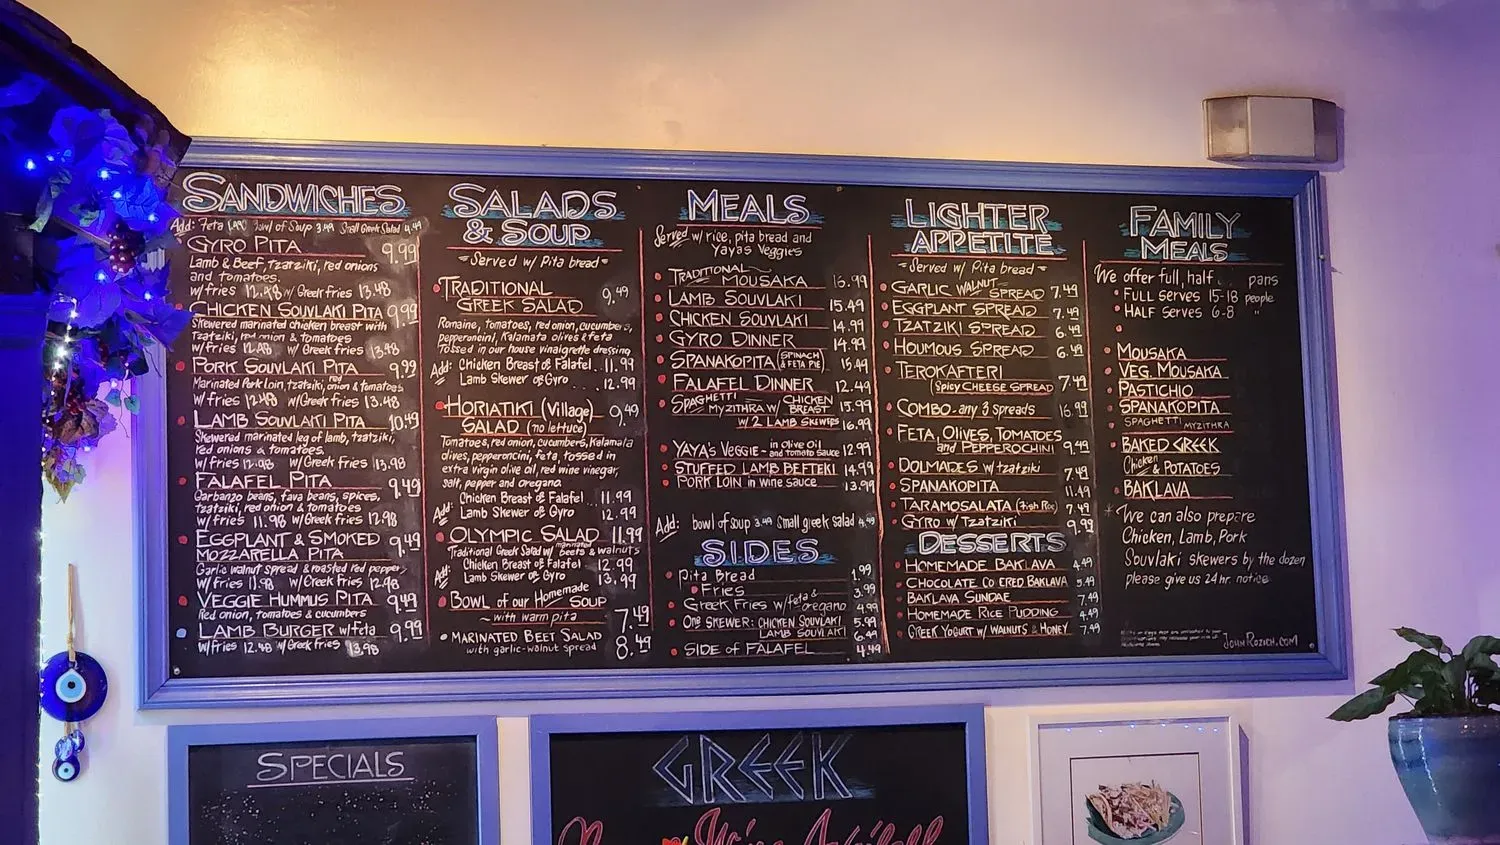 SANDWICHES
Add: Feta 1.49 bowl of Soup 3.49 Small Greek Salad 4.49
GYRO PITA 9.99
Lamb & Beef, tzatziki, red onions
and tomatoes.
w/fries 12.48 w/Greek fries 13.48
CHICKEN SOUVLAKI PITA 9.99
Skewered marinated chicken breast with
tzatziki, red onion & tomatoes
w/fries 12.48 w/Greek fries 13.48
PORK SOUVLAKI PITA 9.99
Marinated Pork loin, tzatziki, red onion & tomatoes
w/fries 12.48 w/Greek fries 13.48
LAMB SOUVLAKI PITA 10.49
Skewered marinated leg of lamb, tzatziki,
red onions & tomatoes.
w/fries 12.98 w/Greek fries 13.98
FALAFEL PITA 9.49
Garbanzo beans, fava beans, spices,
tzatziki, red onion & tomatoes
w/fries 11.98 w/Greek fries 12.98
EGGPLANT & SMOKED
MOZZARELLA PITA 9.49
Garlic walnut spread & roasted red pepper
w/fries 11.98 w/Greek fries 12.98
VEGGIE HUMMUS PITA 9.49
Red onion, tomatoes & cucumbers
LAMB BURGER w/feta 9.99
w/fries 12.48 w/Greek fries 13.98
SALADS
& SOUP
Served w/ Pita bread
TRADITIONAL
GREEK SALAD 9.49
Romaine, tomatoes, red onion, cucumbers,
pepperoncini, Kalamata olives & feta
tossed in our house vinaigrette dressing
Add: Chicken Breast of Falafel.. 11.99
Lamb Skewer of Gyro ... 12.99
HORIATIKI (Village) 9.49
SALAD (no lettuce)
Tomatoes, red onion, cucumbers, Kalamata
olives, pepperoncini, feta, tossed in
extra virgin olive oil, red wine vinegar,
salt, pepper and oregano.
Add: Chicken Breast of Falafel .. 11.99
Lamb Skewer of Gyro ... 12.99
OLYMPIC SALAD 11.99
Traditional Greek Salad w/ marinated beets & walnuts
Add: Chicken Breast of Falafel 12.99
Lamb Skewer of Gyro ... 13.99
BOWL of our Homemade SOUP
~ with warm pita 7.49
MARINATED BEET SALAD
with garlic-walnut spread 8.49
MEALS
Served w/ rice, pita bread and
yaya's Veggies
TRADITIONAL MOUSAKA 16.99
LAMB SOUVLAKI 15.49
CHICKEN SOUVLAKI 14.99
GYRO DINNER 14.99
SPANAKOPITA (SPINACH & FETA PIE) 15.49
FALAFEL DINNER 12.49
SPAGHETTI MYZITHRA W/ CHICKEN BREAST 15.99
W/ 2 LAMB SKEWERS 16.99
YAYA'S VEGGIE - in Olive Oil and tomato sauce 12.99
STUFFED LAMB BEFTEKI 14.99
PORK LOIN in wine sauce 13.99
Add: bowl of soup 3.49 Small greek salad 4.49
SIDES
Pita Bread 1.99
Fries 3.99
Greek Fries w/ feta & oregano 4.99
One SKEWER: CHICKEN SOUVLAKI 5.99
LAMB SOUVLAKI 6.49
SIDE of FALAFEL 4.49
LIGHTER
APPETITE
Served w/ Pita bread
GARLIC WALNUT SPREAD 7.49
EGGPLANT SPREAD 7.49
TZATZIKI SPREAD 6.49
HOUMOUS SPREAD 6.49
TEROKAFTERI
(SPICY CHEESE SPREAD 7.49
COMBO-any 3 Spreads 16.99
FETA, OLIVES, TOMATOES
and PEPPEROCHINI 9.49
DOLMADES w/ tzatziki 7.49
SPANAKOPITA 11.49
TARAMOSALATA (Fish Roe) 7.49
GYRO w/ TZATZIKI 9.99
DESSERTS
HOMEMADE BAKLAVA 4.49
CHOCOLATE CO ERED BAKLAVA 5.49
BAKLAVA SUNDAE 7.49
HOMEMADE RICE PUDDING 4.49
GREEK YOGURT W/ WALNUTS & HONEY 7.49
FAMILY
MEALS
We offer full, half pans
FULL serves 15-18 people
HALF serves 6-8 "
MOUSAKA
VEG. MOUSAKA
PASTICHIO
SPANAKOPITA
SPAGHETTI MYZITHRA
BAKED GREEK
Chicken & POTATOES
BAKLAVA
* We can also prepare
Chicken, Lamb, Pork
Souvlaki skewers by the dozen
please give us 24 hr. notice
JOHNROZICH.COM
SPECIALS
GREEK